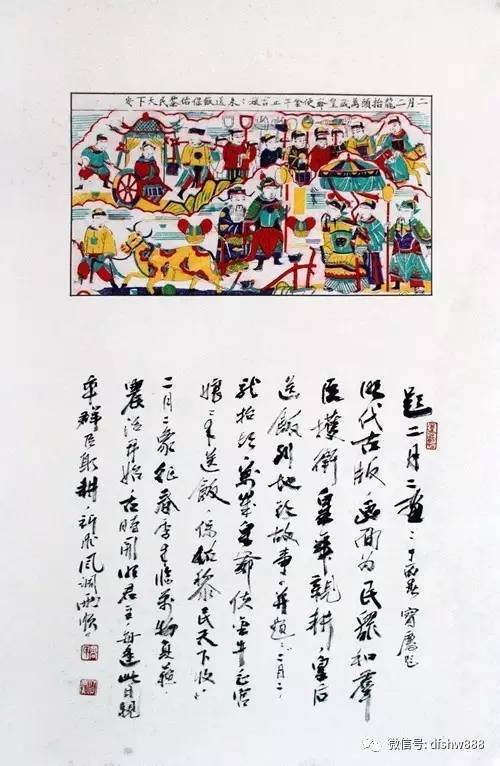 二月二龍抬頭萬歲皇爺使金牛正宮娘〻來送飯保佑黎民天下
題二月二畫
明代古版，畫面為民眾和群
臣擁衛皇帝親耕，皇后
送飯到地頭故事，並題：二月二，
龍抬頭，萬歲皇爺使金牛，正宮
娘〻來送飯，保佑黎民天下收。
二月二象征春季來臨萬物復蘇，
農活開始。古時開明君主，每逢此日親
率群臣躬耕，祈求風調雨順。
微信号: dfshw888